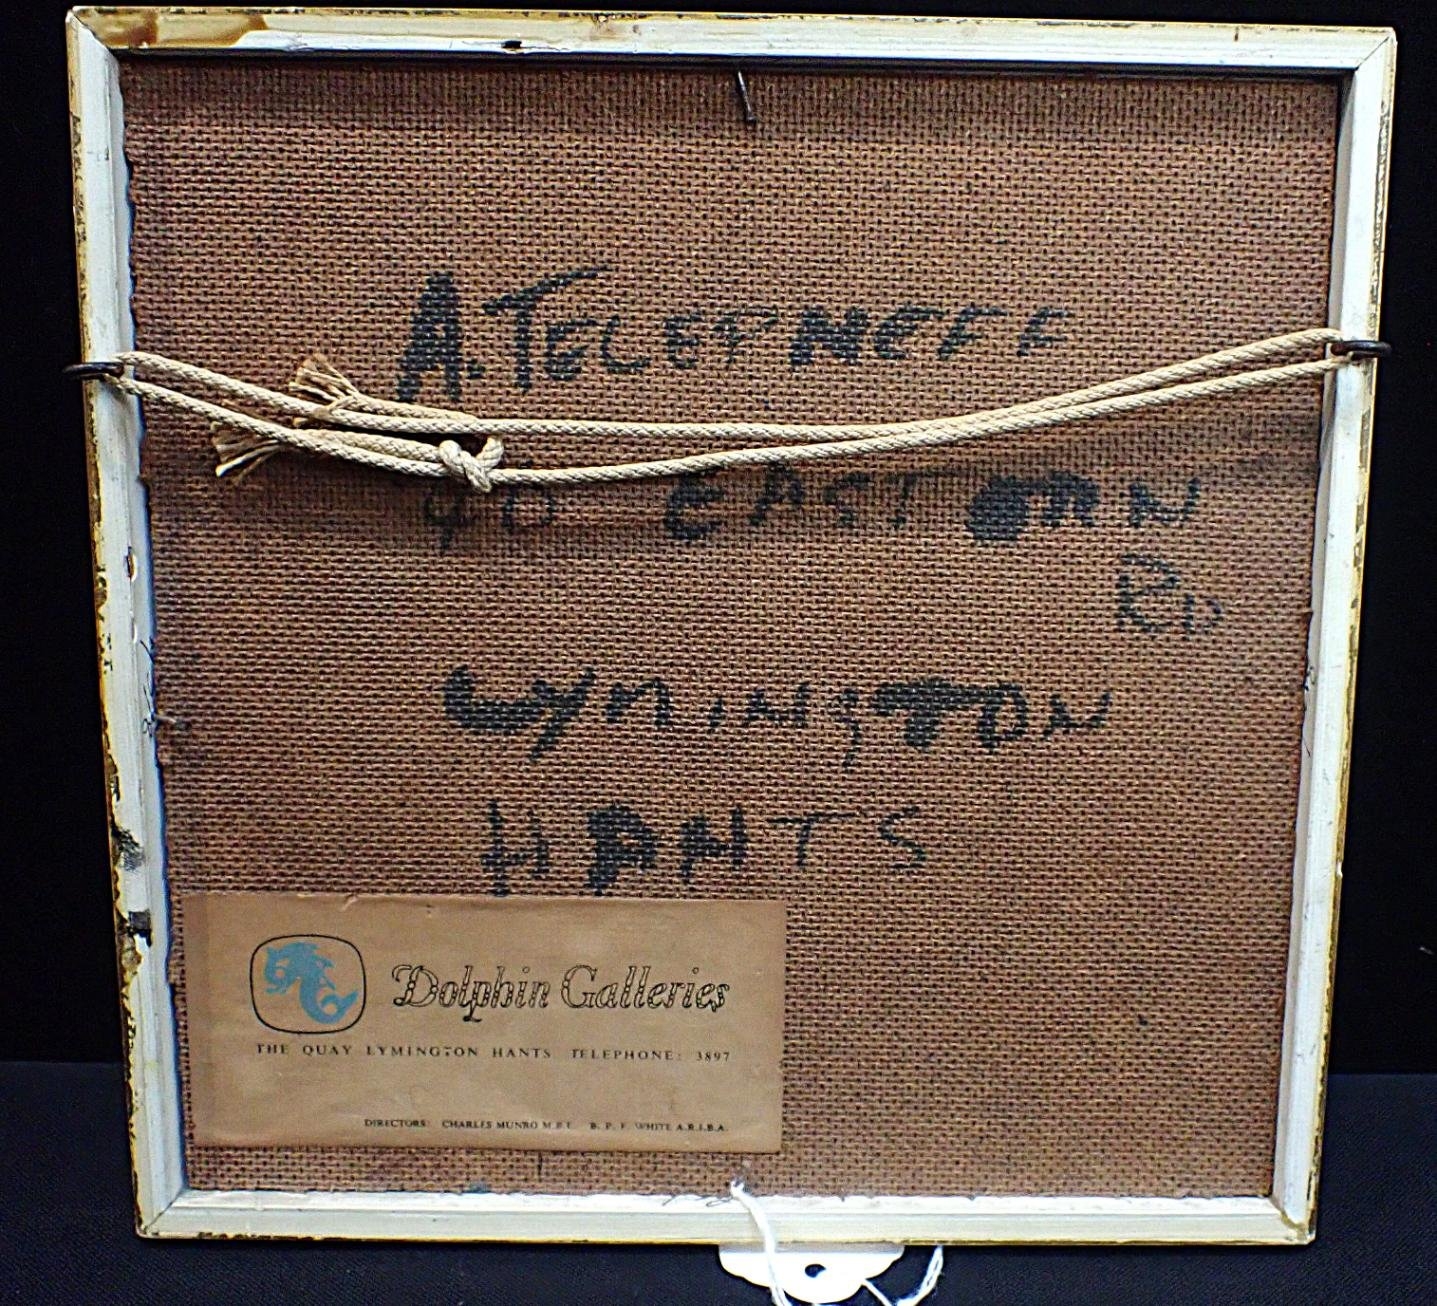 A. TELEPNEFF
90 EASTERN
RD
LYMINGTON
HANTS
Dolphin Galleries
THE QUAY LYMINGTON HANTS TELEPHONE: 3897
DIRECTORS: CHARLES MUNRO M.B.E. B. P. F. WHITE A.R.I.B.A.